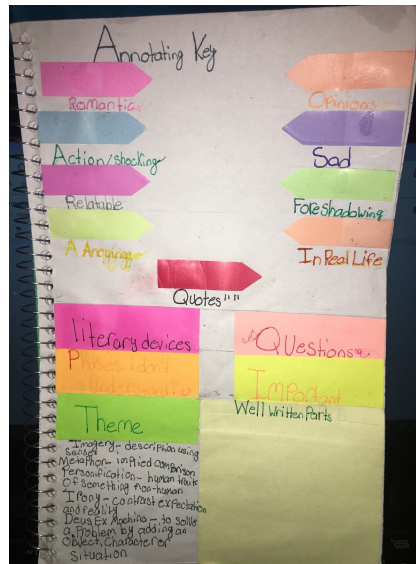 Annotating Key
Romantic
Opinions
Action/shocking
Sad
Relatable
Foreshadowing
Annoying
In Real Life
Quotes " "
literary devices
Questions
Phrases i don't
Understand
Important
Theme
Well Written Parts
Imagery- description using
senses
Metaphor- implied comparison
Personification- human traits
Of something non-human
Irony- contrast expectation
and reality
Deus Ex Machina- to solve
a Problem by adding an
Object, Character or
Situation